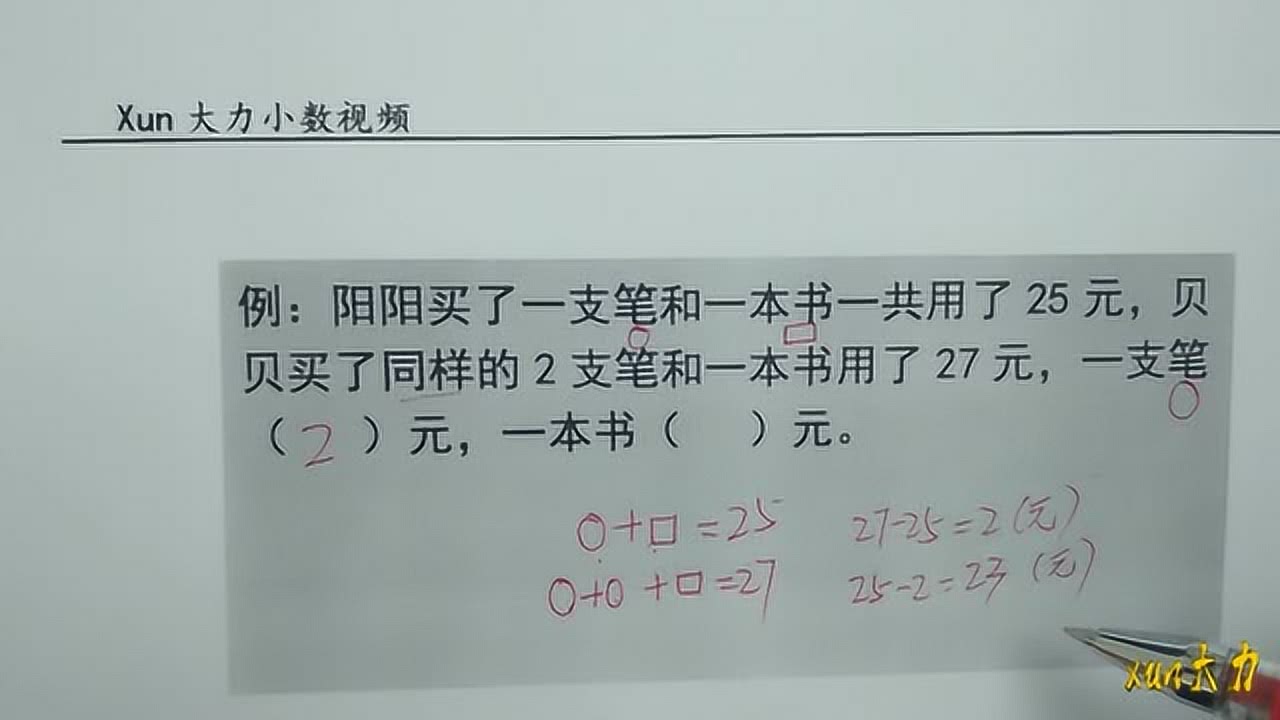 Xun 大力小数视频
例：阳阳买了一支笔和一本书一共用了 25 元，贝
贝买了同样的 2 支笔和一本书用了 27 元，一支笔
（ 2 ）元，一本书（ ）元。
○+□=25 27-25=2(元)
○+○+□=27 25-2=23(元)
xun大力